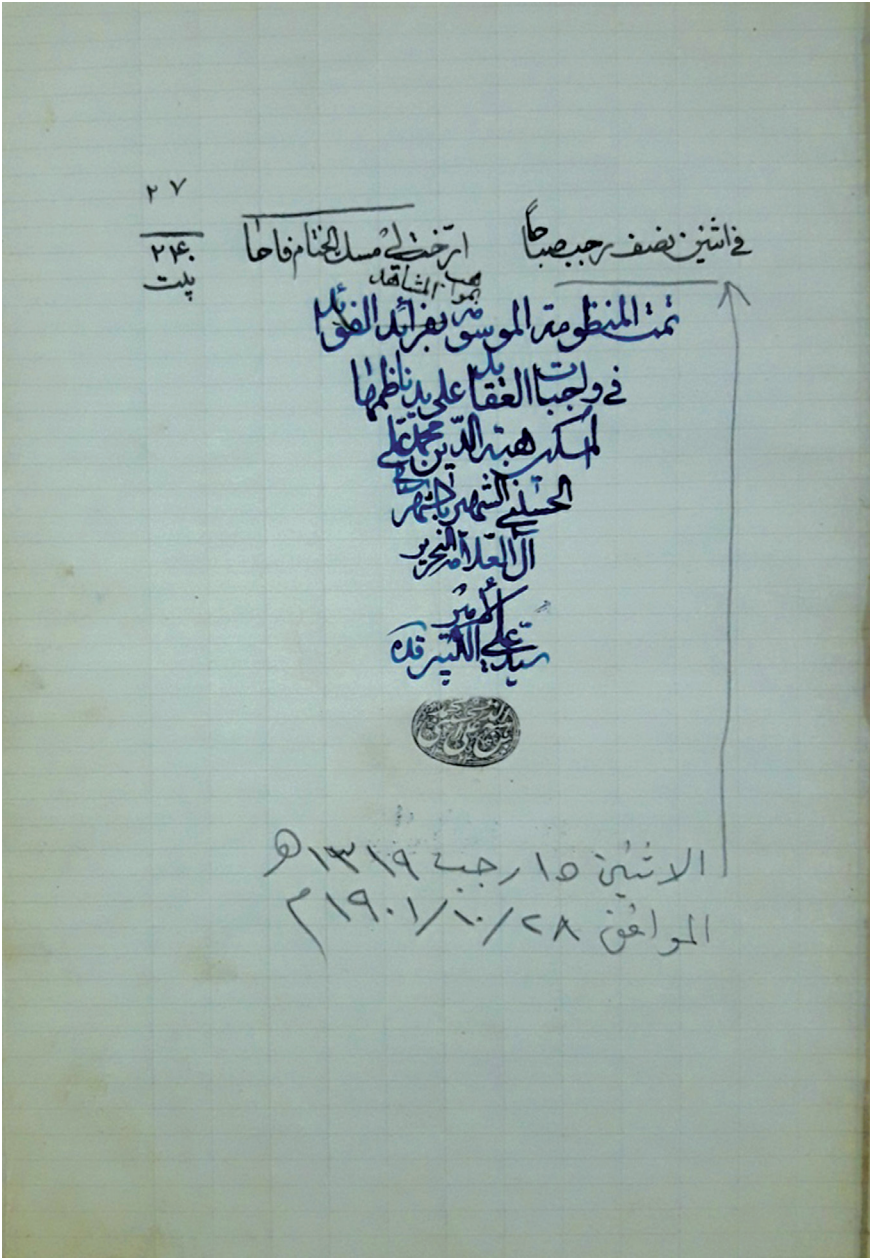 ٢٧
في اثنين نصف رجب صباحا ارخت لي مسك الختام فاحا
٢٤٠
بيت
بمواهب المشاهد
تمت المنظومة الموسومة بفرائد الفوائد
في واجبات العقائد على يد ناظمها
هبة الدين محمد علي
الحسيني الشهير بالشهرستاني
آل العلامة النحرير
الأمير
سيد علي الكبير قده
الاثنين ١٥ رجب ١٣١٩ هـ
الموافق ٢٨/١٠/١٩٠١ م